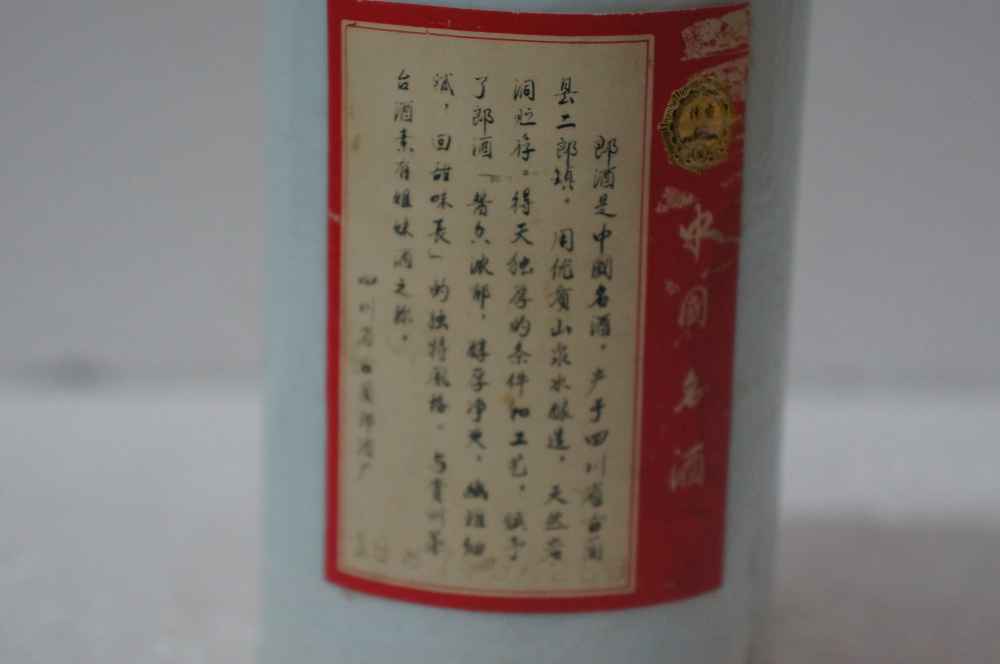 中国名酒
郎酒是中国名酒，产于四川省古蔺
县二郎镇。用优质山泉水酿造，天然岩
洞贮存。得天独厚的条件和工艺，赋予
了郎酒「酱香浓郁，醇厚净爽，幽雅细
腻，回甜味长」的独特风格。与贵州茅
台酒素有姐妹酒之称。
四川省古蔺郎酒厂